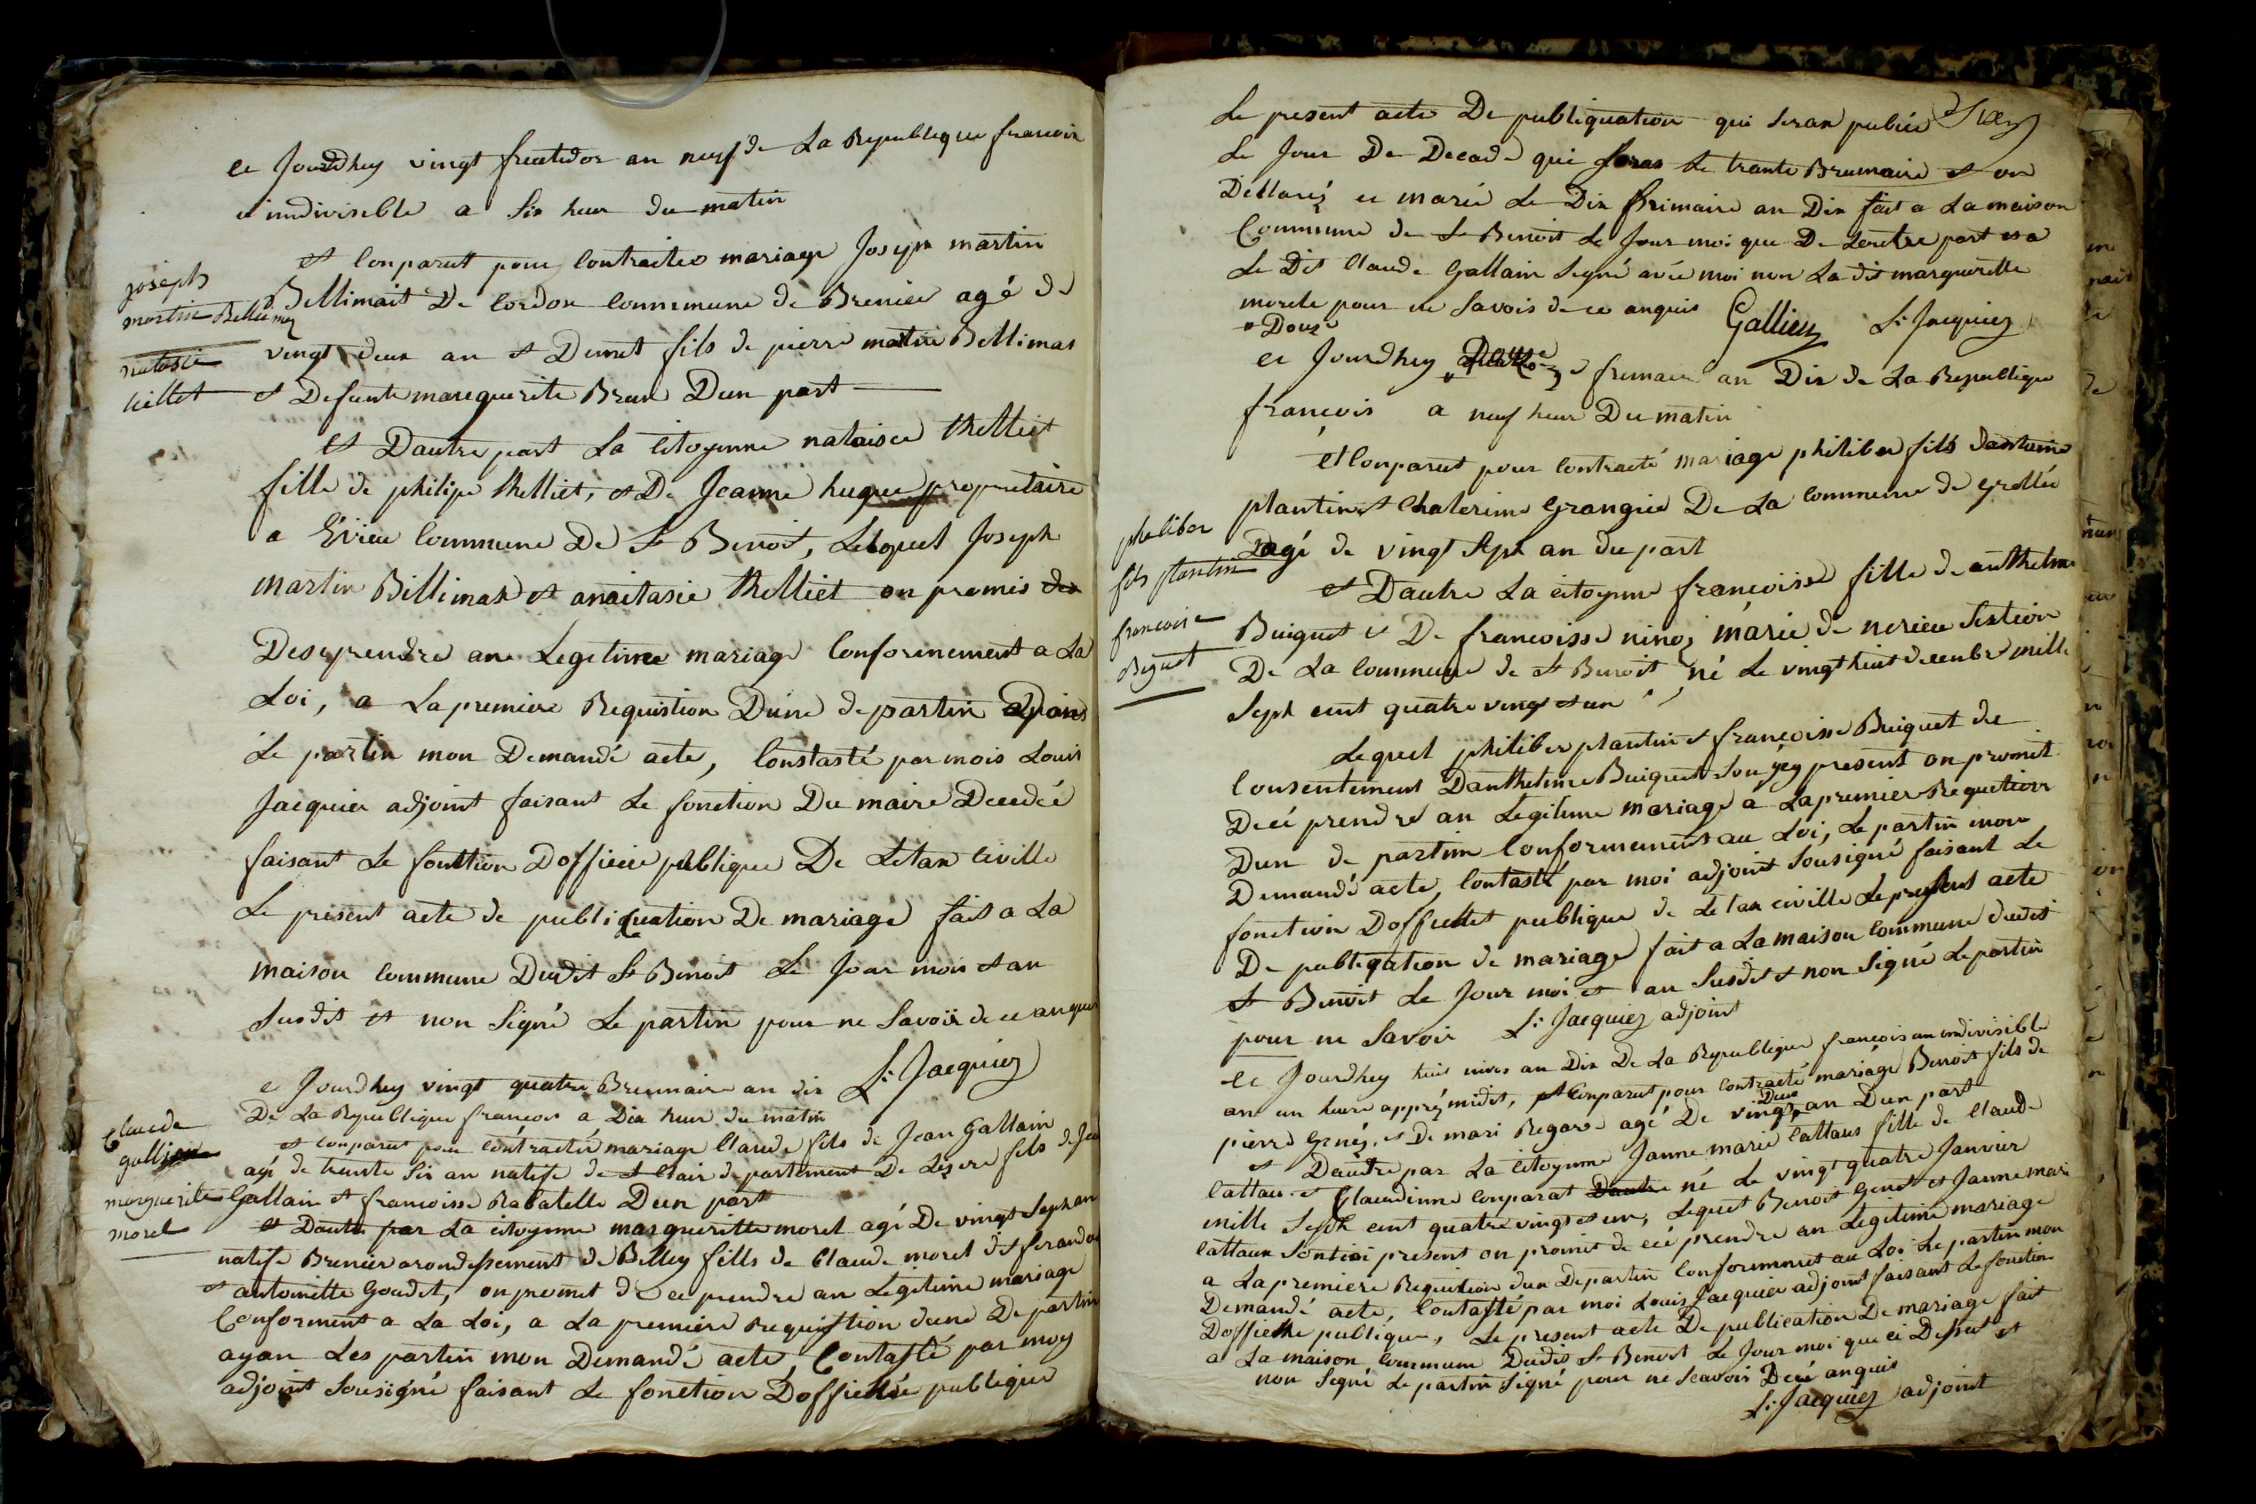 ce Jourdhuy vingt fructidor an neuf de La Republique francoix
et indivisible a six heur du matin
et Conparut pour Contracter mariage Joseph martin
joseph
martin Bellemez
natasie
tilliet
Bellimait De Cordon Commune de Brenier agé de
vingt deux an et Demet fils de pierre martin Bellimat
et Defunte mareguerite Brun Dun part
et Dautre part La Citoyenne nataisee thelliet
fille de philipe thelliet, et De Jeanne hugue propriétaire
a Evieu Commune De St Benoit, Lesquel Joseph
martin Billimat et anaitasie thelliet on promis de
Desi prendre an Legitime mariage Conformement a La
Loi, a La premiere Requistion Dune de partin
Le partin mon Demandé acte, Constasté par mois Louis
Jacquier adjoint faisant Le fonction Du maire Decedée
faisant Le fonction Dofficie publique De Letax Civille
Le present acte de publiquation De mariage fait a La
maison Commune Dudit St Benoit Le Jour mois et an
Susdit et non Signé Le partin pour ne Savoir de ce anquer
L. Jacquiez
ce Jourdhuy vingt quatre Brumaire an dix
De La Republique francois a Dix heur du matin
Claude
gallien
morguerite
morel
et Conparut pour Contracter mariage Claude fils de Jean Gallain
agé de trente Six an natife de St Clair departement De Lesere fils de Jea
Gallain et francoisse Rabatelle Dun part
et Dautre par La citoyenne marguerite morel agé De vingt Sept an
natife Brenier arondissement de Belley fills de Claude morel dit ferando
et antoinette Goudet, on promet de ce prendre an Legitime mariage
Conforment a La Loi, a La premiere Requistion dune De partin
ayan Les partin mon Demandé acte, Contasté par moy
adjoint Sousigné faisant Le fonction Dofficiee publique
Le present acte De publiquation qui seran publiée
Le Jour De Decade qui Seras Le trante Brumaire et on
Déclaré ce marié Le Dix frimaire an Dix fait a La maison
Commune de St Benoit Le Jour moi que De Lautre part et a
Le Dit Claude Gallain Signé avec moi non La dit marguerite
morele pour ne Savois de ce anquis Gallien L. Jacquiez
Douze
ce Jourdhuy frimaire an Dix de La Republique
francois a neuf heur Du matin
Et Conparut pour Contracté mariage philiber fils dantoine
plantin et Chaterine Grangie De La Commune de grollée
pheliber
fils plantin
francoise
Biguet
agé de vingt Sept an du part
et Dautre La citoyenne françoisse fille de anthelme
Buiguet et De francoisse ninoz marié de nerieu Section
De La Commune de St Benoit né Le vingt huit decenbre mill
Sept cent quatre vingt et un
Lequel philiber plantin et francoisse Buiguet de
Consentement Danthelme Buiguet Son pey present on promit
Decé prendre an Legitime mariage a La premier Requetion
Dun de partin Conformement au Loi, Le partin mon
Demandé acte, Contasté par moi adjoint Sousigné faisant Le
fonction Dofficiet publique de Letax civille Le present acte
De publiqation de mariage fait a La maison Commune dudit
St Benoit Le Jour moi et an Susdit et non Signé Le partin
pour ne Savoir L. Jacquiez adjoint
Ce Jourdhuy huit nivos an Dix De La Republique francois an indivisible
an un heure apprémidit, et Conparut pour Contracté mariage Benoit fils de
pierre Genéz, et De mari Regard agé De vingt Deux an Dun part
et Dautre par La Citoyenne Janne marie Cattaus fille de Claude
Cattau et Claudinne Conparat né Le vingt quatre Janvier
mille Sept cent quatre vingt et un, Lequel Benoit Genet et Janne mari
Cattaux Sontici present on promit de ceé prendre an Legitime mariage
a La premiere Requisition dun De partin Conforment au Loi Le partin mon
Demandé acte, Contasté par moi Louis Jacquier adjoint faisant Le fonction
Dofficiee publique, Le present acte De publication De mariage fait
a La maison Commune Dudit St Benoit Le Jour moi que ci Dessut et
non Signé Le partin Signé pour ne Scavoir Dece anquis
L. Jacquiez adjoint